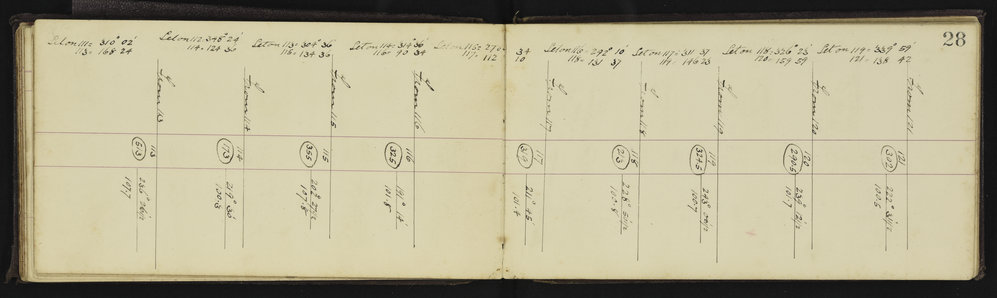 28
Set on 111= 310° 02'
113= 168 24
Set on 112= 348° 24'
114= 124 36
Set on 113= 304° 36
115= 134 36
Set on 114= 314° 36'
116= 90 34
Set on 115= 270= 34
117= 112 10
Set on 116= 292° 10'
118= 131 37
Set on 117= 311 37
119= 146 23
Set on 118= 326° 23'
120= 159 59
Set on 119= 339° 59'
121= 138 42
From 113
113
513
107.7
From 114
114
173
219° 36'
100.3
From 115
115
355
107.8
From 116
116
325
191° 14'
101.8
From 117
117
317
211° 45'
101.4
From 118
118
23
110.8
From 119
119
3245
100.7
From 120
120
2905
101.7
From 121
121
302
100.5